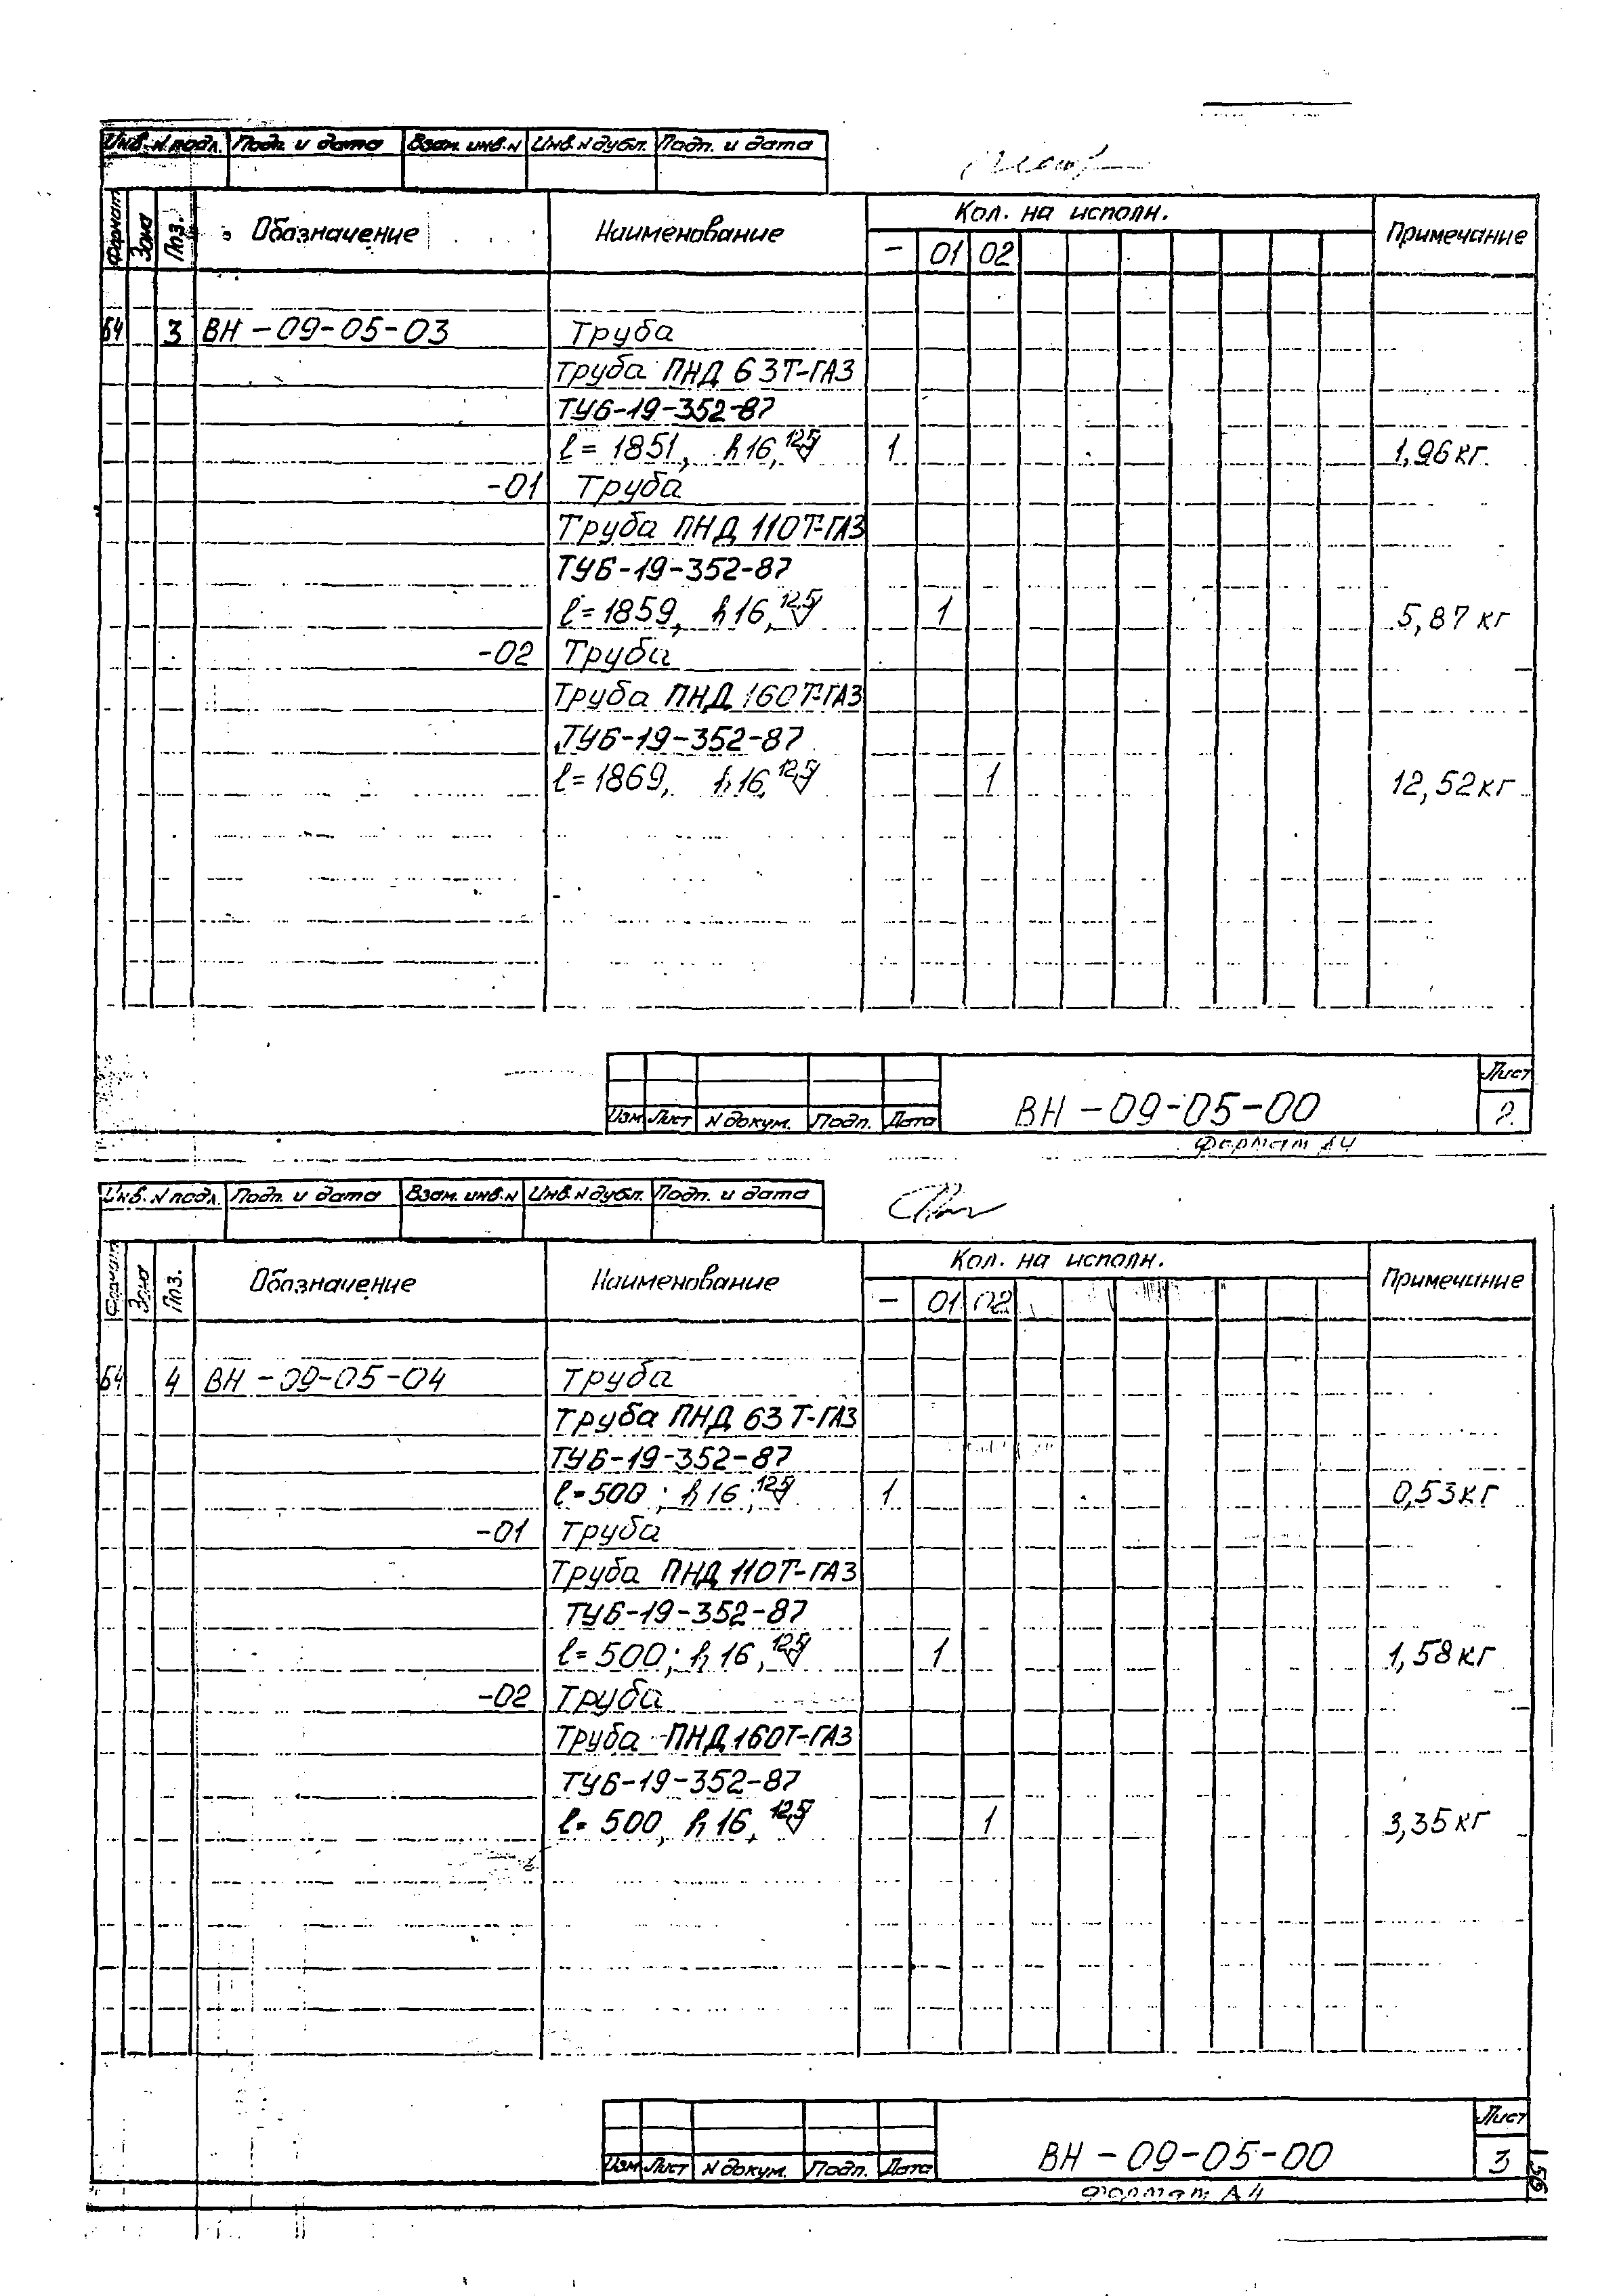 Инв. N подл. Подп. и дата Взам. инв. N Инв. N дубл. Подп. и дата
Формат Зона Поз. Обозначение Наименование Кол. на исполн. Примечание
— 01 02
Б4 3 ВН-09-05-03 Труба
Труба ПНД 63Т-ГАЗ
ТУ6-19-352-87
l=1851, h16, 12,5 1 1,96 кг
-01 Труба
Труба ПНД 110Т-ГАЗ
ТУ6-19-352-87
l=1859, h16, 12,5 1 5,87 кг
-02 Труба
Труба ПНД 160Т-ГАЗ
ТУ6-19-352-87
l=1869, h16, 12,5 1 12,52 кг
Лист
Изм Лист N докум. Подп. Дата ВН-09-05-00 2
Формат А4
Инв. N подл. Подп. и дата Взам. инв. N Инв. N дубл. Подп. и дата
Формат Зона Поз. Обозначение Наименование Кол. на исполн. Примечание
— 01 02
Б4 4 ВН-09-05-04 Труба
Труба ПНД 63Т-ГАЗ
ТУ6-19-352-87
l=500; h16; 12,5 1 0,53 кг
-01 Труба
Труба ПНД 110Т-ГАЗ
ТУ6-19-352-87
l=500; h16, 12,5 1 1,58 кг
-02 Труба
Труба ПНД 160Т-ГАЗ
ТУ6-19-352-87
l=500, h16, 12,5 1 3,35 кг
Лист
Изм Лист N докум. Подп. Дата ВН-09-05-00 3
Формат А4